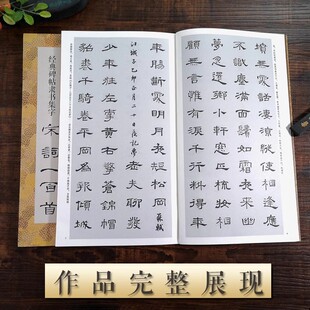 经典碑帖隶书集字
宋詞一百首
墳無處話凄涼縱使相逢應
不識塵滿面鬢如霜夜來幽
夢忽還鄉小軒窗正梳妝相
顧無言惟有淚千行料得年
年腸斷處明月夜短松岡 蘇軾
江城子乙卯正月二十日夜記夢
老夫聊發
少年狂左牽黃右擎蒼錦帽
貂裘千騎卷平岡為報傾城
作品完整展现